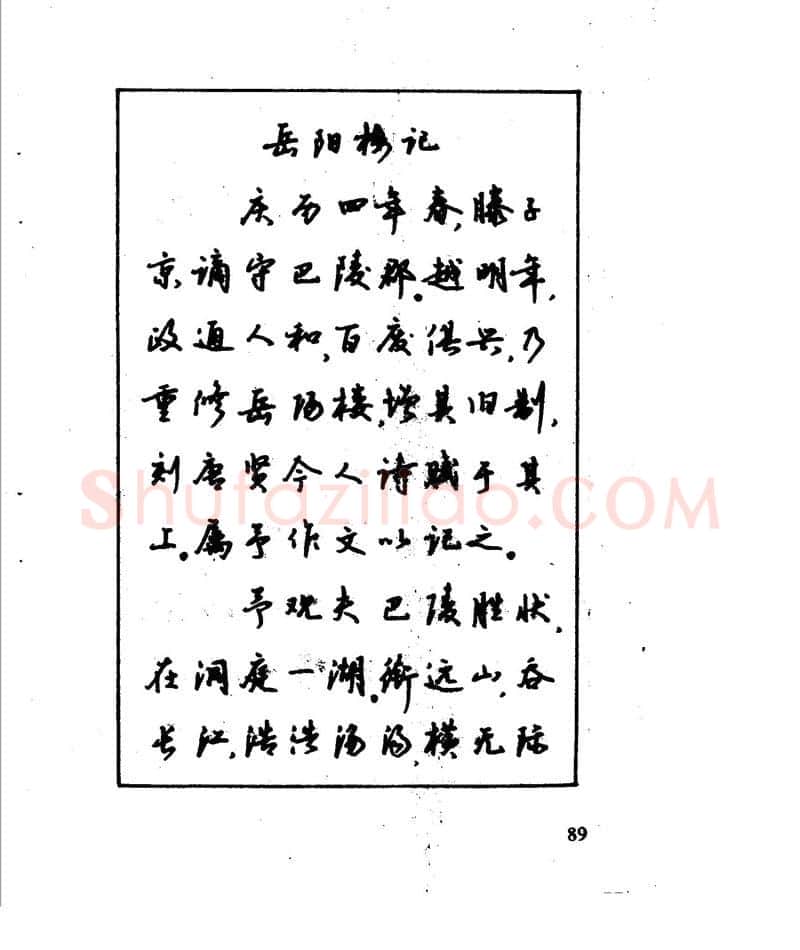 岳阳楼记
庆历四年春,滕子
京谪守巴陵郡。越明年,
政通人和,百度俱兴,乃
重修岳阳楼,增其旧制,
刻唐贤今人诗赋于其
上。属予作文以记之。
予观夫巴陵胜状,
在洞庭一湖。衔远山,吞
长江,浩浩汤汤,横无际
shufaziliao.COM
89